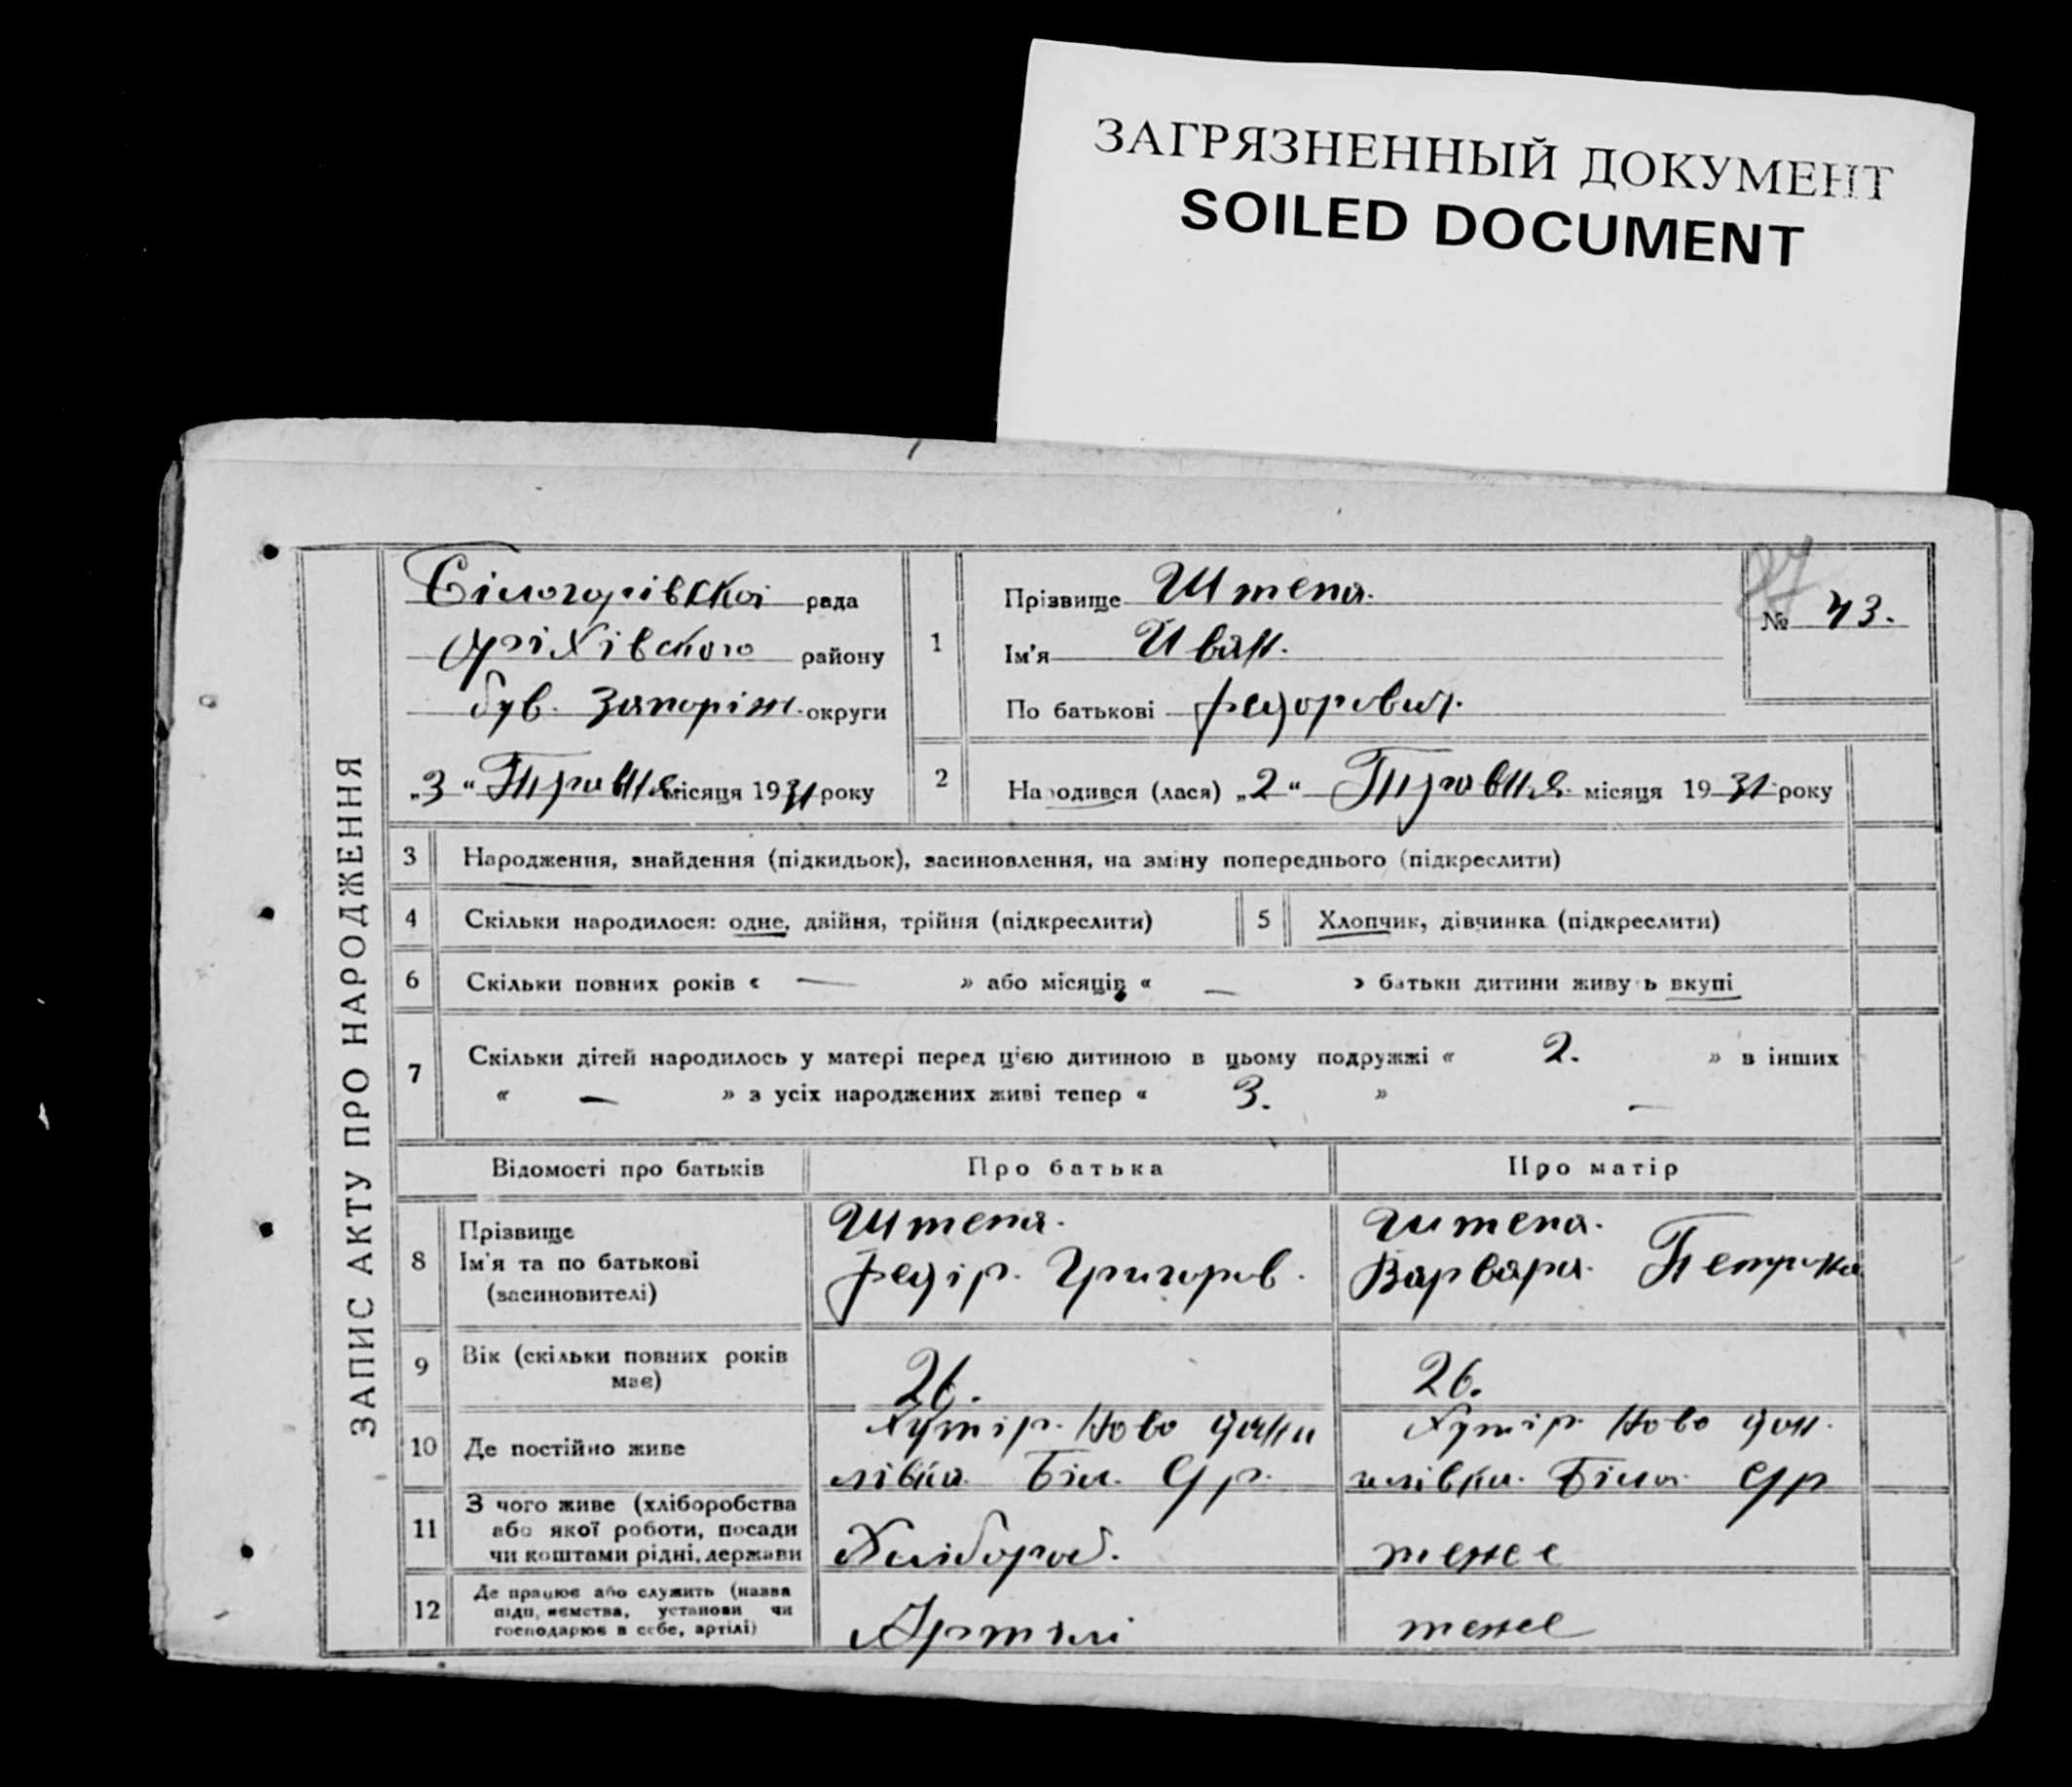 ЗАГРЯЗНЕННЫЙ ДОКУМЕНТ
SOILED DOCUMENT
ЗАПИС АКТУ ПРО НАРОДЖЕННЯ
Білогорівської рада
Оріхівського району
був. Запоріж. округи
„3“ Травня місяця 1931 року
1
Прізвище Штепа.
Ім'я Иван.
По батькові Федорович.
87
№ 43.
2 Народився (лася) „2“ Травня місяця 1931 року
3 Народження, знайдення (підкидьок), засиновлення, на зміну попереднього (підкреслити)
4 Скільки народилося: одне, двійня, трійня (підкреслити) 5 Хлопчик, дівчинка (підкреслити)
6 Скільки повних років « — » або місяців « — » батьки дитини живуть вкупі
7 Скільки дітей народилось у матері перед цією дитиною в цьому подружжі « 2. » в інших
« — » з усіх народжених живі тепер « 3. » —
Відомості про батьків Про батька Про матір
8 Прізвище
Ім'я та по батькові
(засиновителі)
Штепа.
Федір. Григоров.
Штепа.
Варвара. Петровна
9 Вік (скільки повних років
має)
26.
26.
10 Де постійно живе
Хутір. Ново Дани
лівка. Біл. С/р.
Хутір Ново Дан.
илівка. Біло. С/р
11 З чого живе (хліборобства
або якої роботи, посади
чи коштами рідні, держави
Хлібороб.
теже
12 Де працює або служить (назва
підприємства, установи чи
господарює в себе, артілі)
Артілі
теже